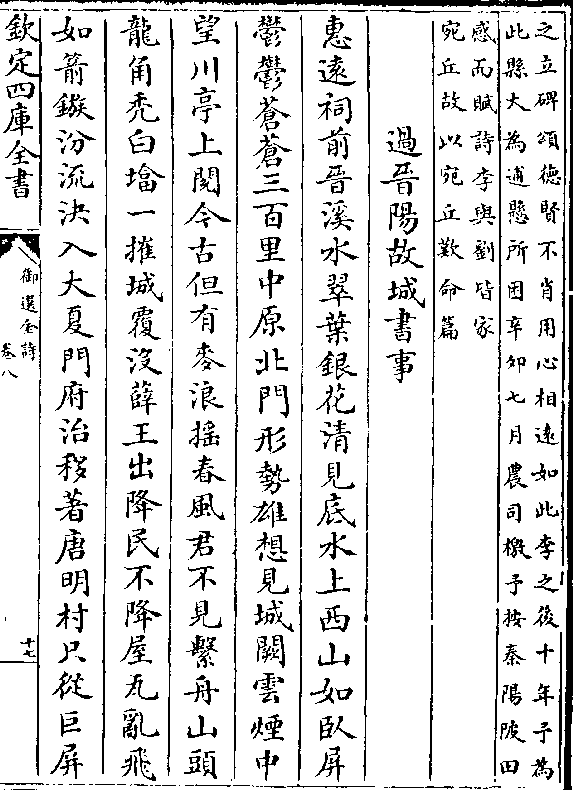 之立碑頌德賢不肖用心相遠如此李之後十年予為
此縣大為逋懸所困辛卯七月農司檄予按秦陽陂田
感而賦詩李與劉皆家
宛丘故以宛丘歎命篇
過晉陽故城書事
惠遠祠前晉溪水翠葉銀花清見底水上西山如臥屏
鬱鬱蒼蒼三百里中原北門形勢雄想見城闕雲煙中
望川亭上閱今古但有麥浪搖春風君不見繫舟山頭
龍角禿白塔一摧城覆沒薛王出降民不降屋瓦亂飛
如箭鏃汾流決入大夏門府治移著唐明村只從巨屏
欽定四庫全書
御選金詩
卷八
十七